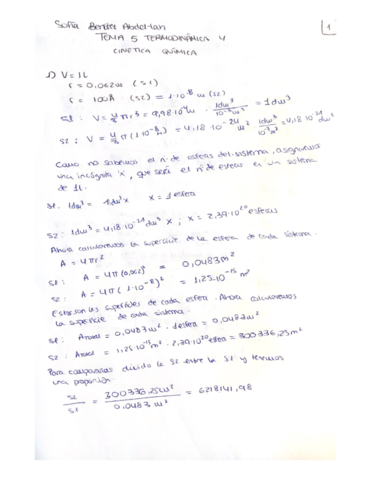 Sofía Benítez Abdel-lan
TEMA 5 TERMODINÁMICA Y
CINÉTICA QUÍMICA
1
1) V = 1L
r = 0,062m (S1)
r = 100Å (S2) = 1·10⁻⁸ m (S2)
S1: V = 4/3 πr³ = 9,98·10⁻⁴ m³ · 1dm³/10⁻³m³ = 1dm³
S2: V = 4/3 π(1·10⁻⁸)³ = 4,18·10⁻²⁴ m³ · 1dm³/10⁻³m³ = 4,18·10⁻²¹ dm³
Como no sabemos el nº de esferas del sistema, asignaré
una incógnita 'x', que será el nº de esferas en un sistema
de 1L.
S1: 1dm³ = 1dm³x x = 1 esfera
S2: 1dm³ = 4,18·10⁻²¹dm³ x ; x = 2,39·10²⁰ esferas
Ahora calculamos la superficie de la esfera de cada sistema.
A = 4πr²
S1: A = 4π(0,062)² = 0,0483m²
S2: A = 4π(1·10⁻⁸)² = 1,25·10⁻¹⁵ m²
Estas son las superficies de cada esfera. Ahora calculamos
la superficie de cada sistema.
S1: Atotal = 0,0483m² · 1esfera = 0,0483m²
S2: Atotal = 1,25·10⁻¹⁵m² · 2,39·10²⁰esfera = 300336,25m²
Para compararlas divido la S2 entre la S1 y tenemos
una proporción.
S2/S1 = 300336,25m²/0,0483 m² = 6218141,98